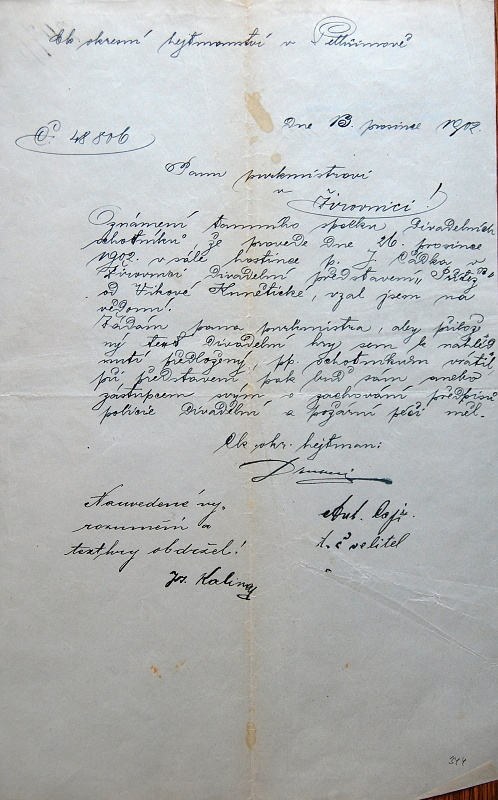 Ck okresní hejtmanství v Pelhřimově
Dne 13. prosince 1902.
Č. 48806
Panu purkmistrovi
v
Žirovnici!
Oznámení tamního spolku divadelních
ochotníků že provede dne 26. prosince
1902. v sále hostince p. J. Čádka v
Žirovnici divadelní představení,
od Vikové Kunětické, vzal jsem na
vědomí.
Žádám pana purkmistra, aby přilož
ný text divadelní hry sem k nahléd
nutí předložený, pp. ochotníkům vrátil
při představení, pak buď sám anebo
zástupcem svým o zachování předpisů
policie divadelní a požární péči měl.
Ck. okr. hejtman:
Navedené vy-
rozumění a
text hry obdržel!
Kalina
Ant.
t. č velitel
344